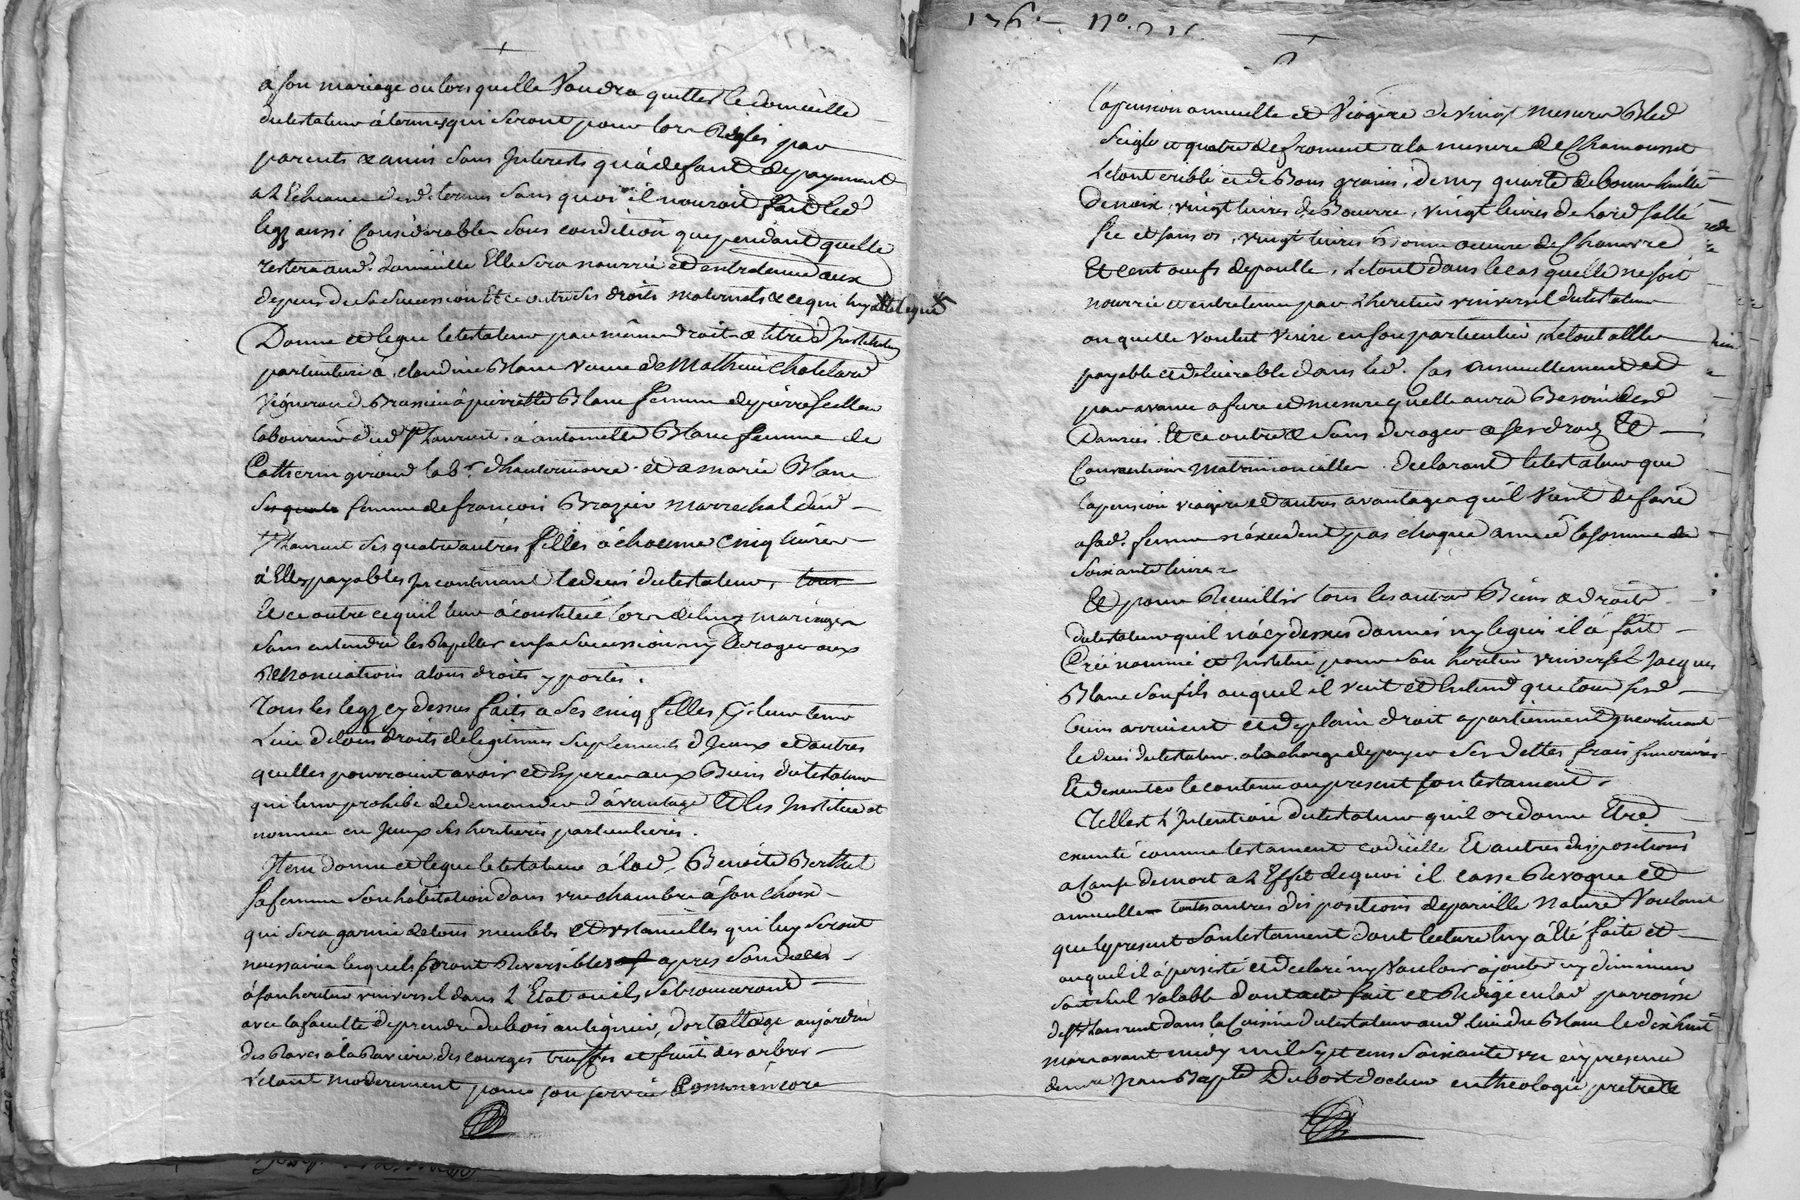 a son mariage ou lors quelle Voudra quitter le domicille
du testateur a termes qui seront pour lors Réglés par
parents & amis sans Interests qu'a defaut de payement
a L'Echeance desd. termes sans quoi il n'auroit fait led
legz aussi Considerable sous condition que pendant quelle
restera aud. domicille Elle sera nourrie et entretenue aux
depens de sa Succession Et ce outre ses droits maternels & ce qui luy a eté legué
Donne et legue le testateur par même droit & titre d'Institution
particuliere a claudine Blanc veuve de Mathieu Chatelard
Vigneron de a pierrette Blanc femme de pierre
laboureur dud St Laurent, a antoinette Blanc femme de
Catherin giroud lab.r d'hauterivoire et a marie Blanc
femme de francois Brazier marrechal dud
St Laurent ses quatre autres filles a chacune Cinq livres
a Elles payables Incontinant le deces du testateur, tous
Et ce outre ce qu'il leur a constitué lors de leurs mariages
sans entendre les Rapeller en sa succession ny deroger aux
Renonciations a tous droits y portés.
Tous les legz cy dessus faits a ses cinq filles pr leur tenir
Lieu de tous droits de legitimes suplements d'Iceux et autres
quelles pourroient avoir et Esperer aux Biens du testateur
qui leur prohibe de demander d'avantage Et les Institue et
nomme en Iceux ses heritieres particulieres.
Item donne et legue le testateur a lad. Benoite Berthet
sa femme son habitation dans une chambre a son choix
qui sera garnie de tous meubles et ustancilles qui luy seront
necessaires lesquels seront Reversibles apres son deces
a son heritier universel dans L'Etat ou ils se trouveront
avec la faculté de prendre du bois au lignier, d'ortollage au jardin
des Raves a la Raviere, des courges truffes et fruit des arbres
Le tout moderement pour son service Comme encore
la pension annuelle et Viagere de vingt mesures Bled
seigle et quatre de froment a la mesure de Chamousset
Le tout criblé et de Bons grains, demy quarte de bonne huille
de noix, vingt livres de Beurre, vingt livres de lard sallé
sec et sans os, vingt livres Bonne oeuvre de Chanvre
Et cent oeufs de poulle, Le tout dans le cas quelle ne soit
nourrie et entretenue par L'heritier universel du testateur
ou quelle voulut vivre en son particulier, Le tout
payable et delivrable dans led. Cas annuellement et
par avance a fure et mesure quelle aura Besoin desd
Danrées. Et ce outre & sans deroger a ses droits Et
Conventions Matrimonialles. declarant le testateur que
la pension viagere et autres avantages qu'il vient de faire
a sad. femme n'éxcedent pas chaque année la somme de
soixante livres
Et pour Receuillir tous les autres Biens & droits
du testateur qu'il n'a cy dessus donnés ny legués il a fait
Créé nommé et Institué pour son heritier universel Jacques
Blanc son fils auquel il veut et Entend que tous sesd
biens arrivent et de plain droit apartiennent Incontinant
le deces du testateur, a la charge de payer ses dettes frais funeraires
Et dexecuter le contenu au present son testament.
Telle est L'Intention du testateur qu'il ordonne Etre
executé comme testament codicille Et autres dispositions
a Cause de mort a L'Effet de quoi il casse Revoque et
annulle toutes autres dispositions de pareille Nature Voulant
que le present son testament dont lecture luy a été faite et
auquel il a persisté et declaré ny Vouloir ajouter ny diminuer
soit seul valable dont acte fait et Redigé en lad parroisse
de St Laurent dans la Cuisine du testateur aud. lieu du Blanc le dix huit
mars avant midy mil sept cens soixante un en presence
de mre Jean Bapte Dubost docteur en theologie pretre